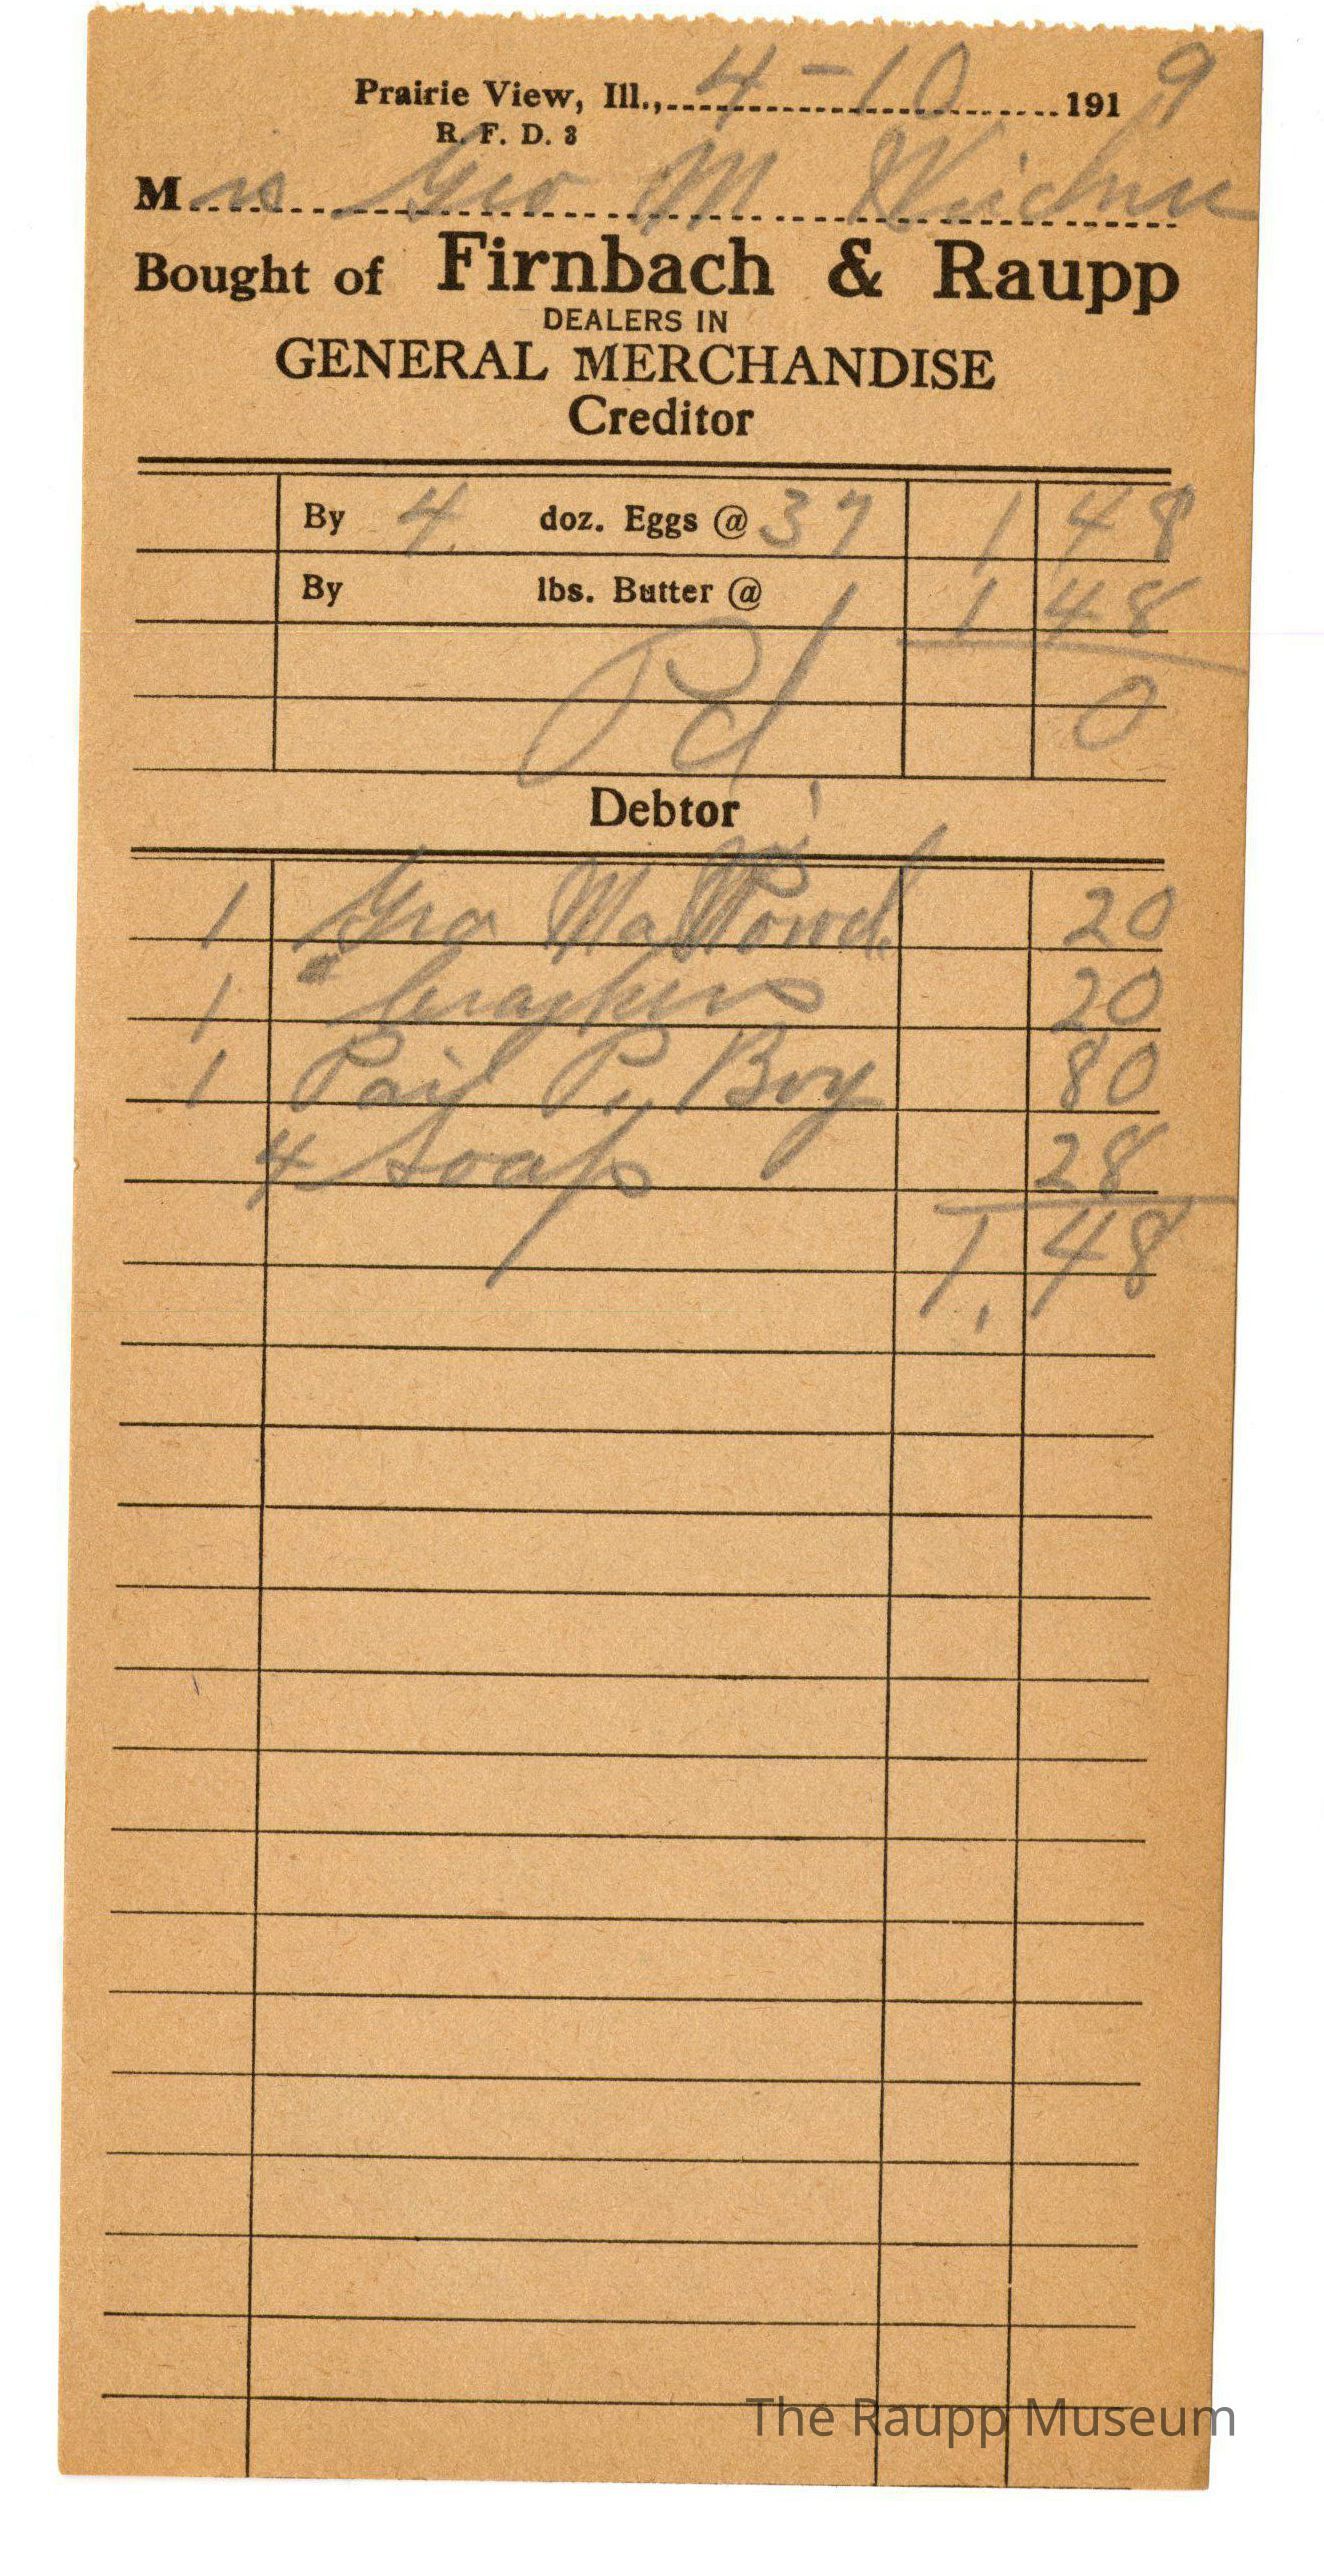 Prairie View, Ill., 4-10 1919
R. F. D. 3
Mrs Geo M
Bought of Firnbach & Raupp
DEALERS IN
GENERAL MERCHANDISE
Creditor
By 4 doz. Eggs @ 37 1 48
By lbs. Butter @ 1 48
Pd 0
Debtor
1 20
1 20
1 Pail P. Boy 80
4 Soap 28
1.48
The Raupp Museum